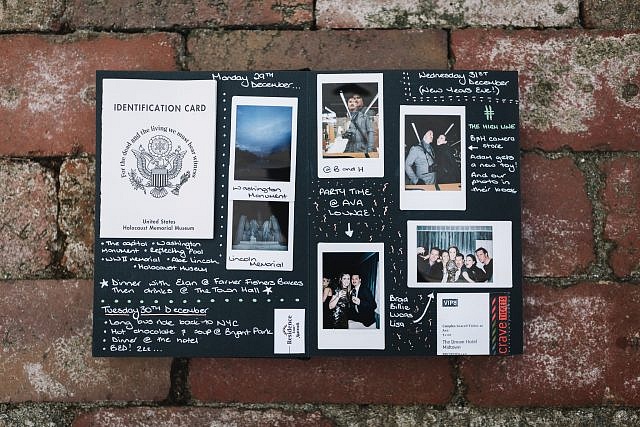 Monday 29TH
December...
IDENTIFICATION CARD
For the dead and the living we must bear witness
United States
Holocaust Memorial Museum
Washington
Monument
Lincoln
Memorial
• The Capitol • Washington
Monument • Reflecting Pool
• WWII Memorial • Abe Lincoln
• Holocaust Museum
★ Dinner with Elan @ Farmer Fishers Bakers
Then drinks @ The Town Hall ★
Tuesday 30TH December
• Long bus ride back to NYC
• Hot chocolate + soup @ Bryant Park
• Dinner @ the hotel
• BED!
Residence
Marriott
@ B and H
PARTY TIME
@ AVA
LOUNGE!
Wednesday 31ST
December
(New Years Eve!)
#
THE HIGH LINE
B+H camera
store
Adam gets
a new toy!
And our
photo in
their book
Brad
Billie
Lisa
VIP8
The Dream Hotel
Midtown
crave
TICKETS